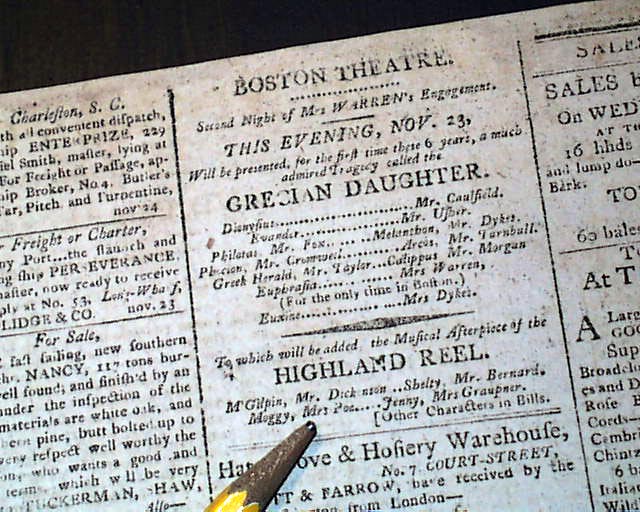 Charleston, S. C.
th all convenient dispatch,
ip ENTERPRIZE, 229
iel Smith, master, lying at
For Freight or Passage, ap-
hip Broker, No. 4, Butler's
Tar, Pitch, and Turpentine,
nov 24
r Freight or Charter,
ny Port...the staunch and
ng ship PERSEVERANCE,
master, now ready to receive
pply at No. 53, Long-Wharf,
LIDGE & CO. nov. 23
For Sale,
fast sailing, new southern
hr. NANCY, 117 tons bur-
well found; and finish'd by an
under the inspection of the
materials are white oak, and
pine, butt bolted up to
very respect well worthy the
on, who wants a good and
terms, which will be very
TUCKERMAN, SHAW,
Also—
BOSTON THEATRE.
Second Night of Mrs WARREN's Engagement.
THIS EVENING, NOV. 23,
Will be presented, for the first time these 6 years, a much
admired Tragedy called the
GRECIAN DAUGHTER.
Dionysius, Mr. Caulfield.
Evander, Mr. Usher.
Philotas, Mr. Fox.... Melanthon, Mr. Dykes.
Phocion, Mr. Cromwell Arcas, Mr. Turnbull.
Greek Herald, Mr. Taylor...Calippus Mr. Morgan
Euphrasia, Mrs Warren,
(For the only time in Boston.)
Euxine, Mrs Dykes.
To which will be added, the Musical Afterpiece of the
HIGHLAND REEL.
M'Gilpin, Mr. Dickenson ..Shelty, Mr. Bernard,
Moggy, Mrs Poe....Jenny, Mrs Graupner.
[Other Characters in Bills.
ove & Hosiery Warehouse,
No. 7, COURT-STREET,
TT & FARROW, have received by the
from London—
SALE
SALES
On WED
AT T
16 hhds
and lump
Bark.
TO
60 bales
At T
A Large
GOO
Sup
Broadcl
es and
Rose B
Coeds
Cambri
Chintz
6 b
Italian